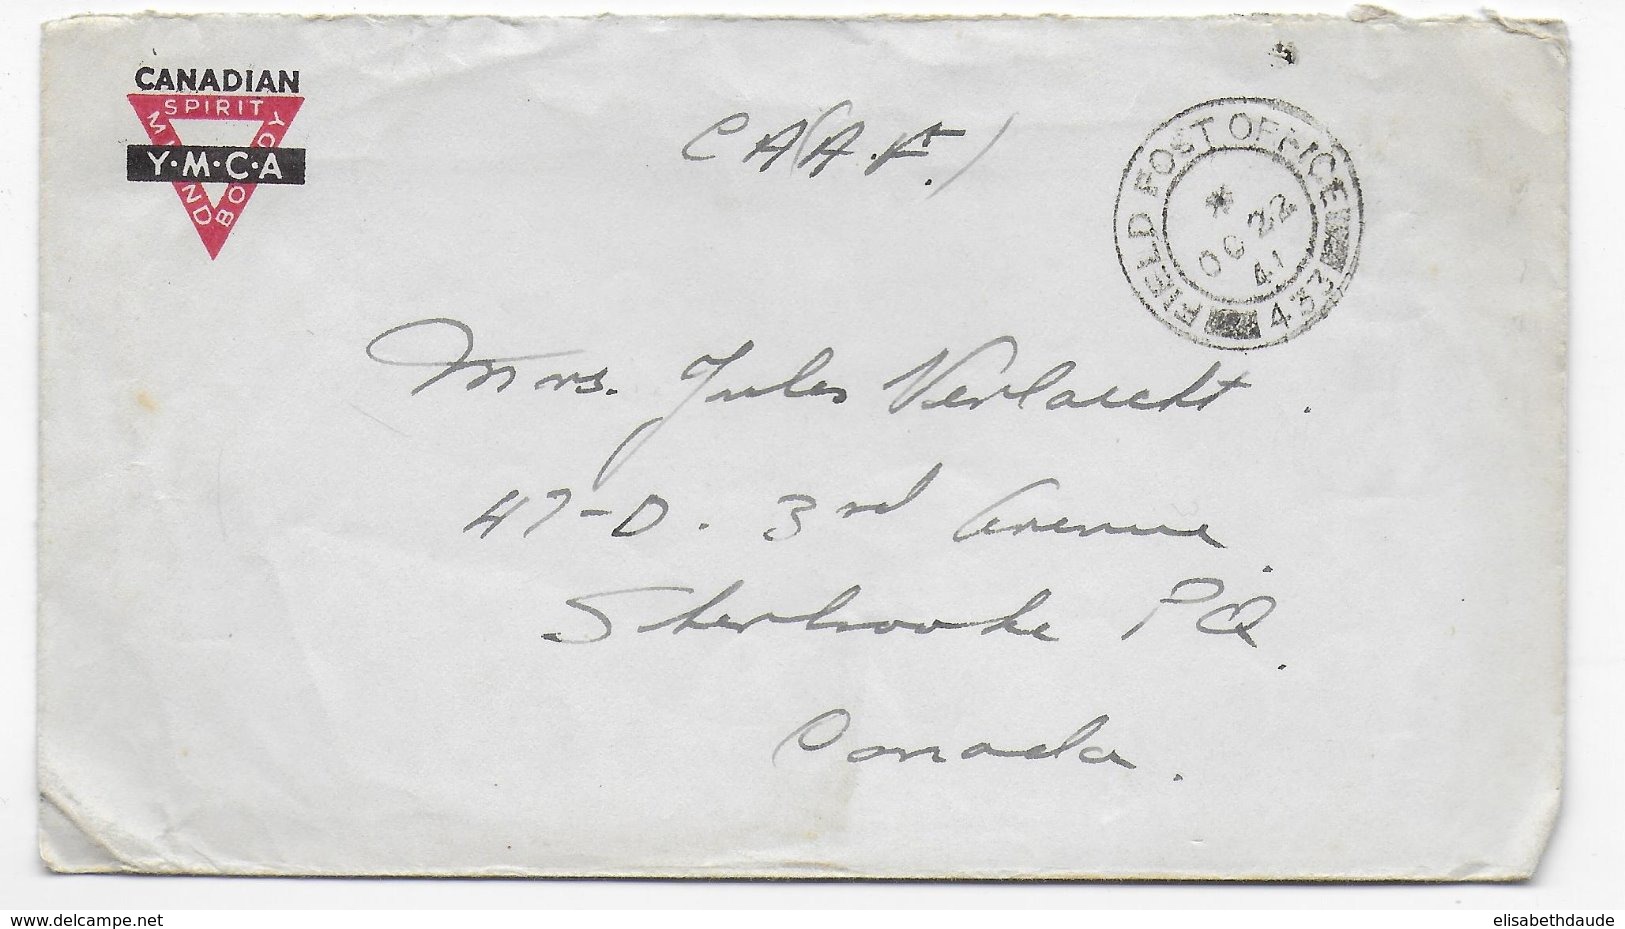 CANADIAN
SPIRIT
MIND
BODY
Y·M·C·A
FIELD POST OFFICE
433
*
OC 22
41
Mrs. Jules Verlaecht.
47-D. 3rd Avenue.
Sherbrooke PQ.
Canada.
www.delcampe.net
elisabethdaude